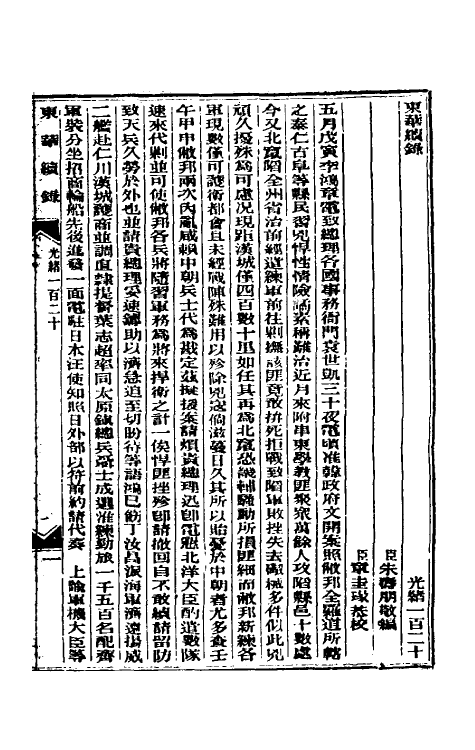 東華續錄
光緒一百二十
臣朱壽朋敬編
臣章圭瑑恭校
五月戊寅李鴻章電致總理各國事務衙門袁世凱三十夜電頃准韓政府文開案照敝邦全羅道所轄
之泰仁古阜等縣民習兇悍性情險譎素稱難治近月來附串東學教匪聚眾萬餘人攻陷縣邑十數處
今又北竄陷全州省治前經遣練軍前往剿撫該匪竟敢拚死拒戰致陷軍敗挫失去礮械多件似此兇
頑久擾殊為可慮況現距漢城僅四百數十里如任其再為北竄恐畿輔騷動所損匪細而敝邦新練各
軍現數僅可護衛都會且未經戰陣殊難用以殄除兇寇倘滋蔓日久其所以貽憂於中朝者尤多查壬
午甲申敝邦兩次內亂咸賴中朝兵士代為戡定茲擬援案請煩貴總理迅即電懇北洋大臣酌遣數隊
速來代剿並可使敝邦各兵將隨習軍務為將來捍衛之計一俟悍匪挫殄即請撤回自不敢續請留防
致天兵久勞於外也並請貴總理妥速籌助以濟急迫至切盼待等語鴻已飭丁汝昌派海軍濟遠揚威
二艦赴仁川漢城護商並調直隸提督葉志超率同太原鎮總兵聶士成選准練勁旅一千五百名配齊
軍裝分坐招商輪船先後進發一面電駐日本汪使知照日外部以符前約請代奏　上諭軍機大臣等
東華續錄
光緒一百二十
一